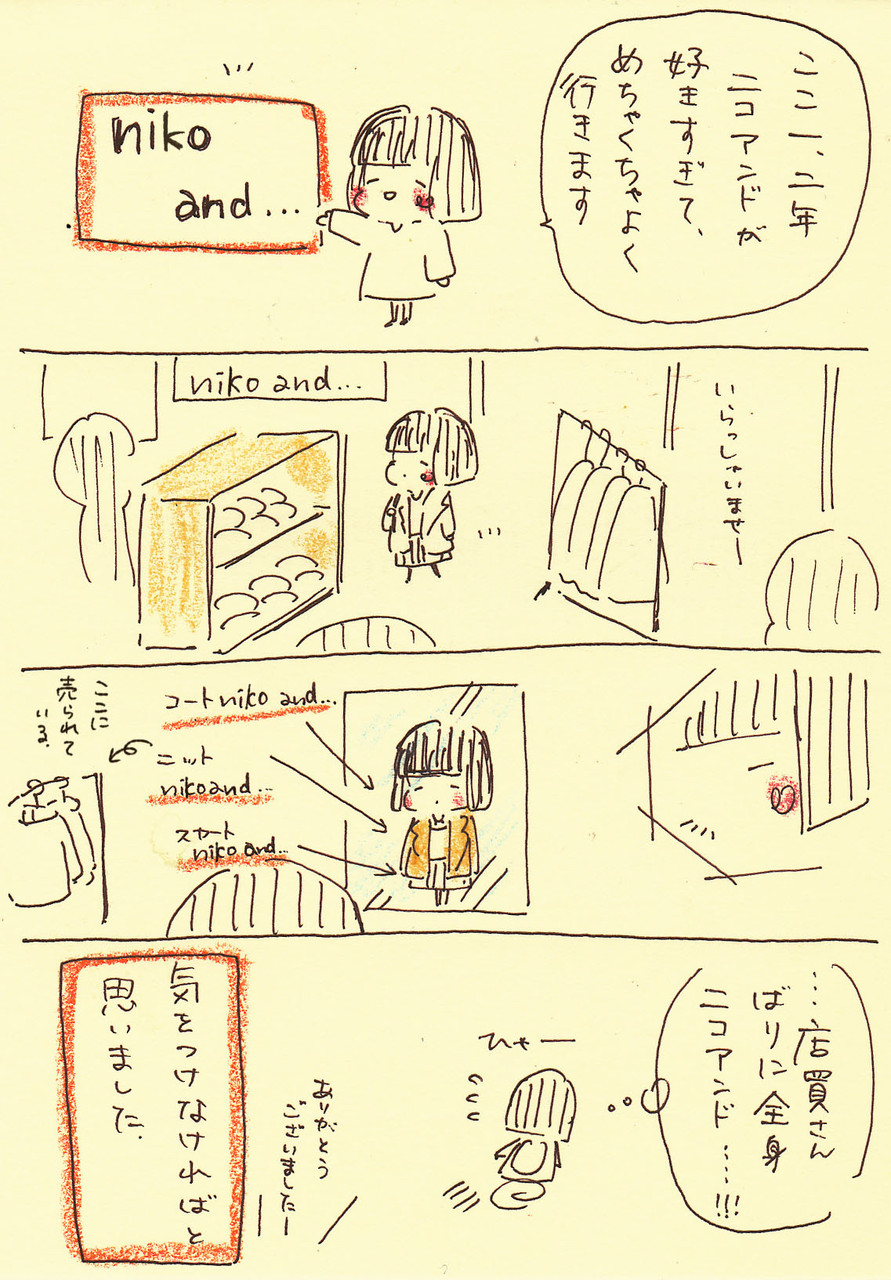 ここ一、二年
ニコアンドが
好きすぎて、
めちゃくちゃよく
行きます
niko
and...
いらっしゃいませー
niko and...
コートniko and...
ニット
nikoand...
スカート
niko and...
ここに
売られて
いる。
…店買さん
ばりに全身
ニコアンド……!!!
ひゃー
ありがとう
ございましたー
気をつけなければと
思いました.